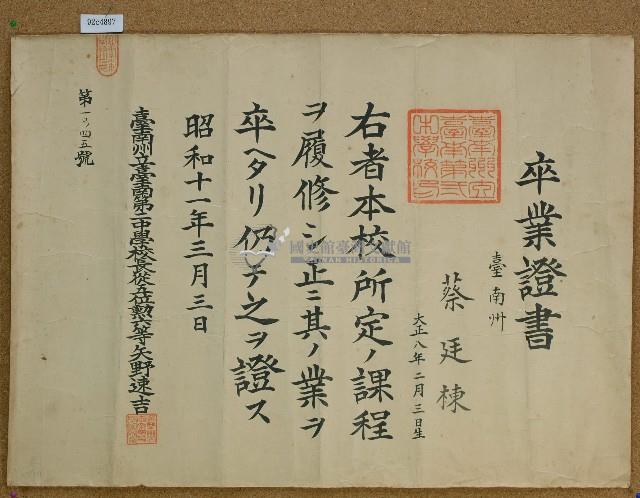 卒業證書
臺南州
蔡廷棟
大正八年二月三日生
右者本校所定ノ課程
ヲ履修シ正ニ其ノ業ヲ
卒ヘタリ仍テ之ヲ證ス
昭和十一年三月三日
臺南州立臺南第二中學校長從五位勲六等矢野速吉
第一〇四五號
國史館臺灣文獻館
TAIWAN HISTORICA
92c4897